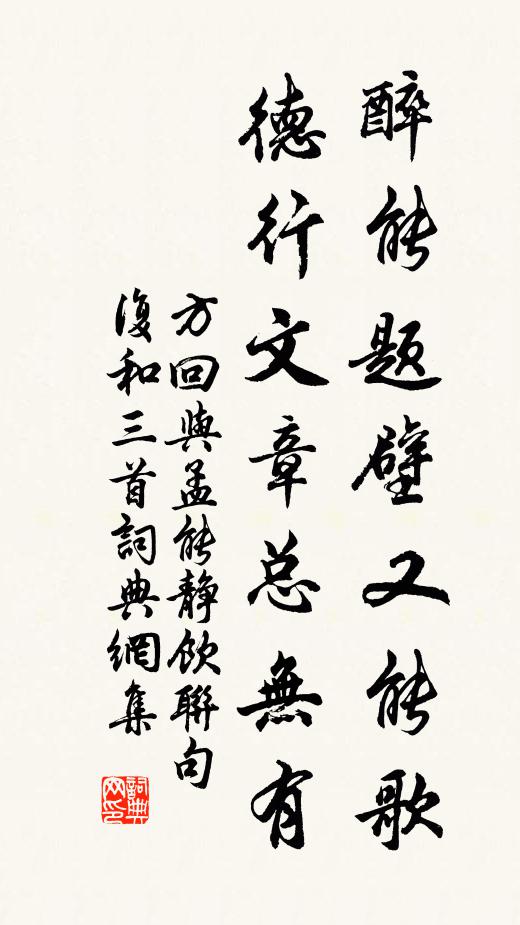 醉能題壁又能歌
德行文章总無有
方回與孟能靜飲聯句
復和三首詞典網集
詞典网印